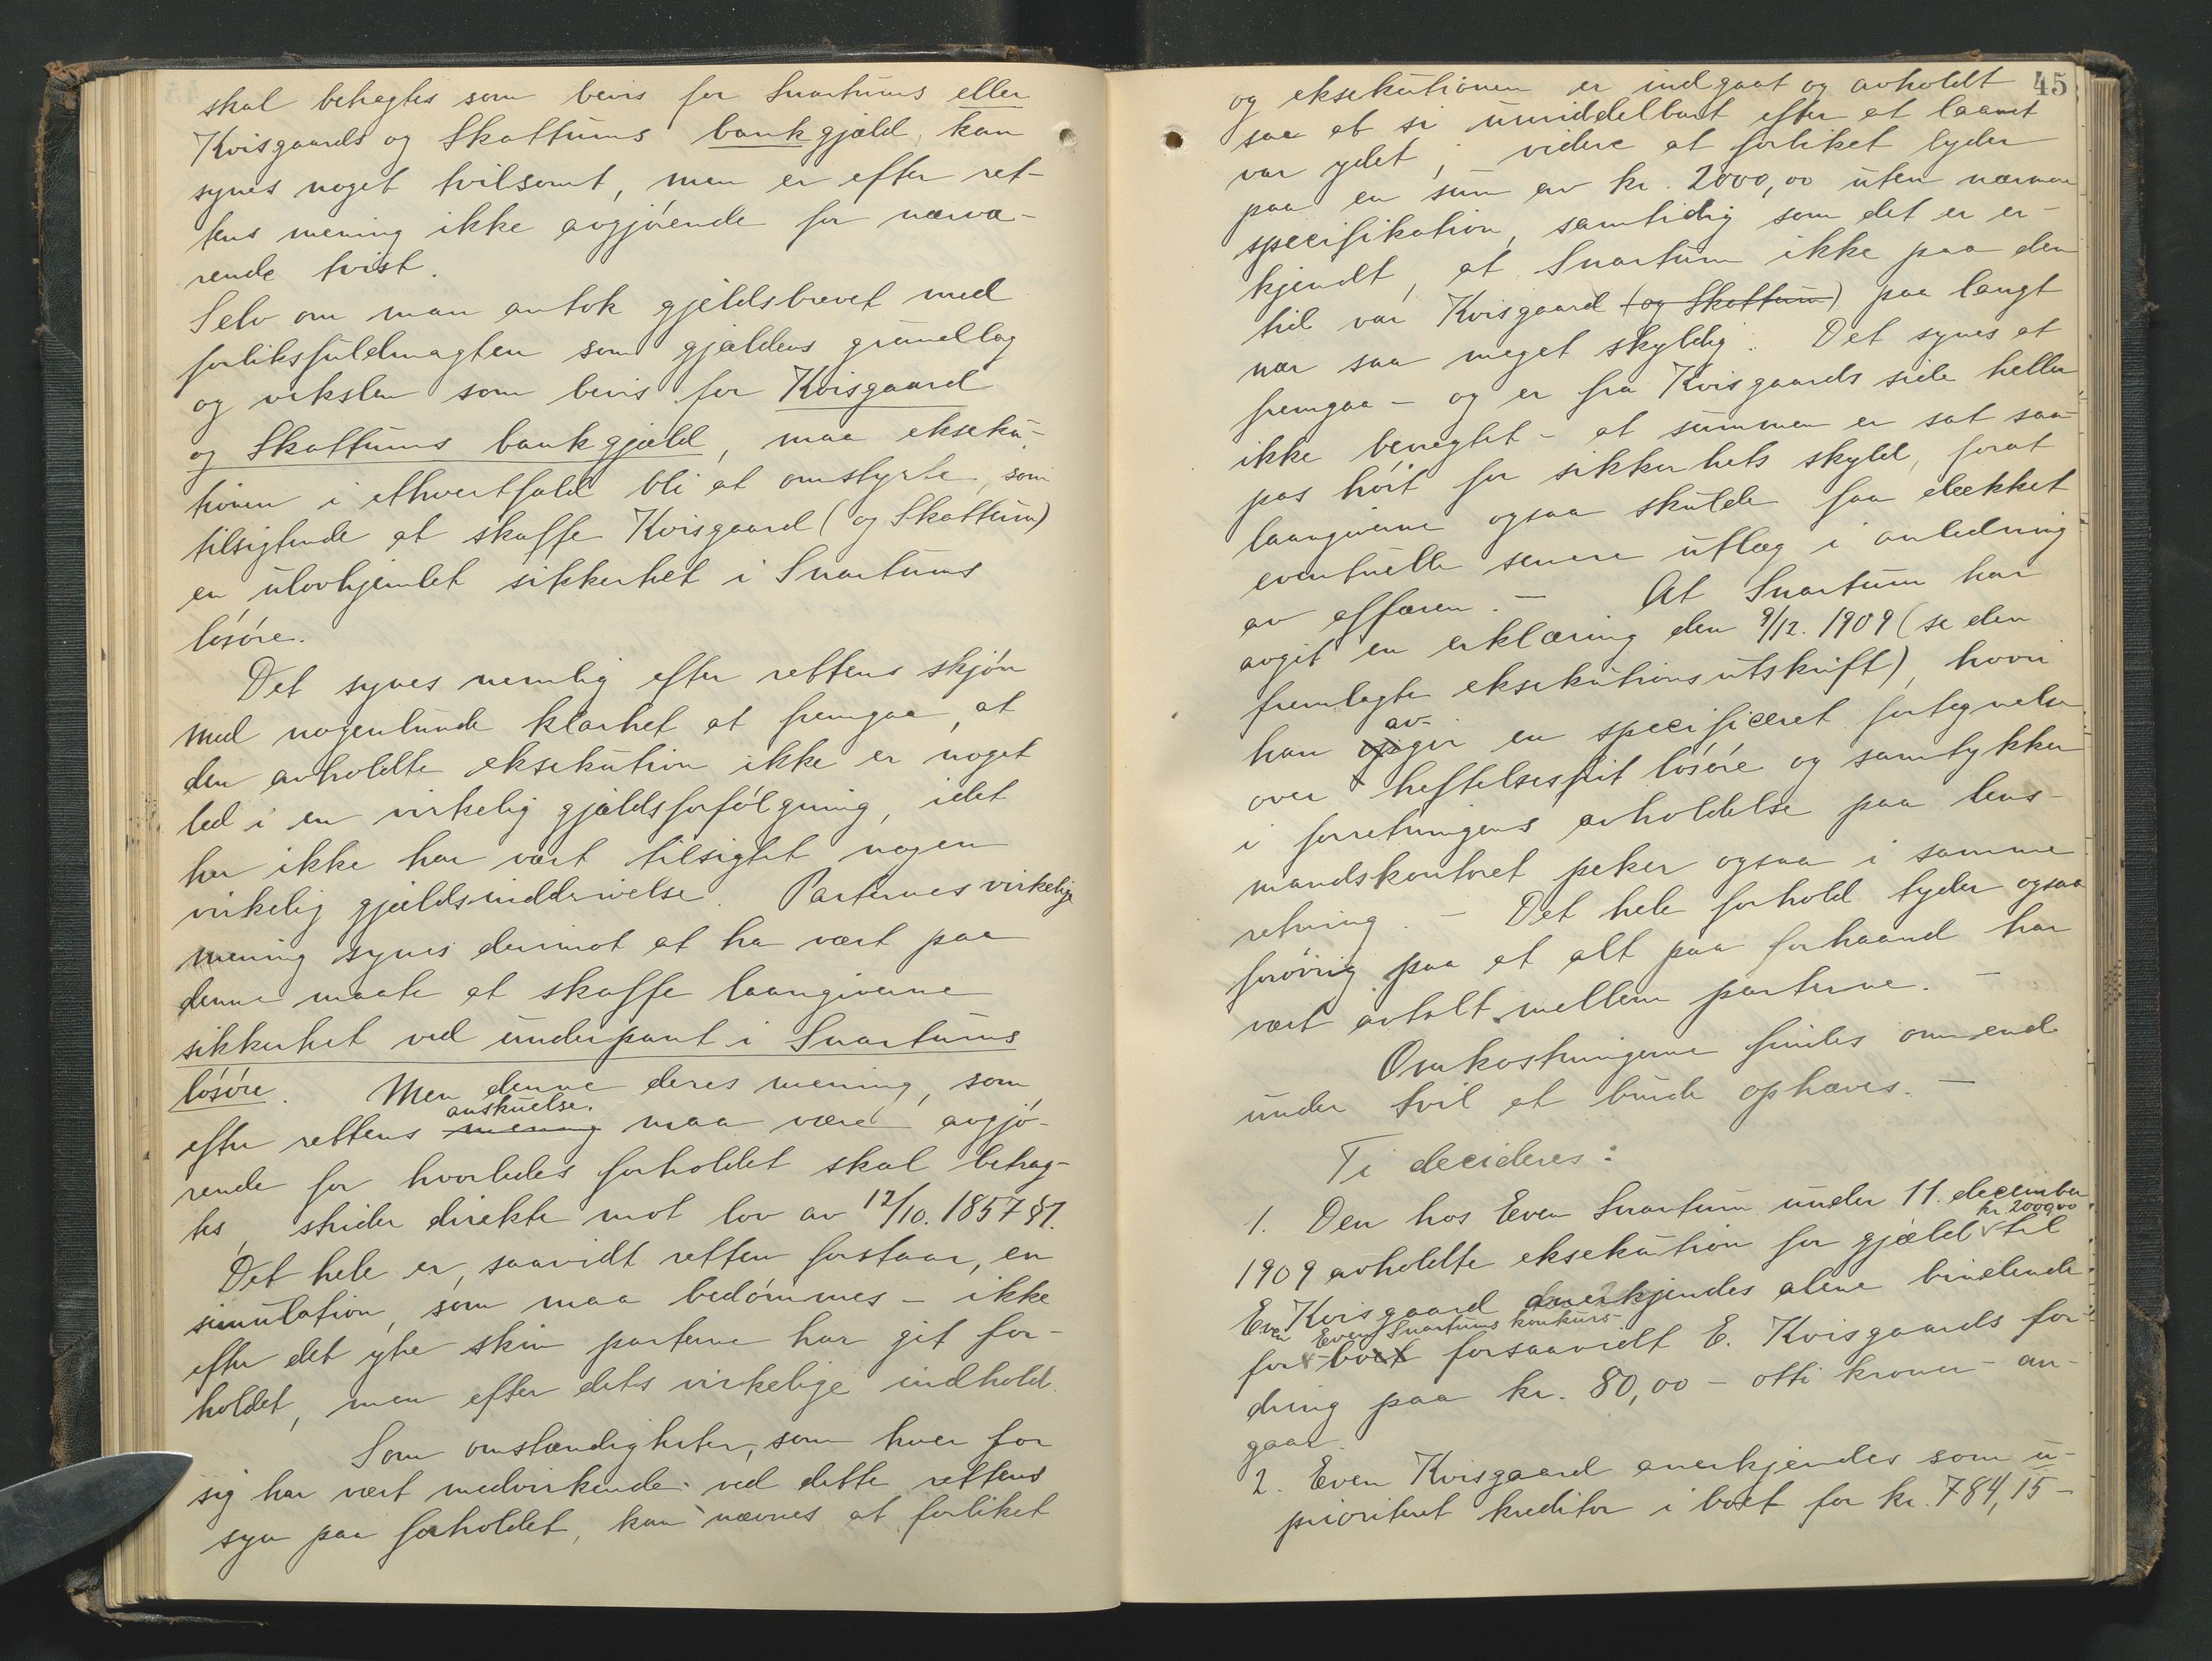 skal betragtes som bevis for Snartums eller
Kvisgaards og Skattums bankgjæld, kan
synes noget tvilsomt, men er efter ret-
tens mening ikke avgjørende for nærvæ-
rende tvist.
Selv om man antok gjeldsbrevet med
forliksfuldmagten som gjældens grundlag
og vekslen som bevis for Kvisgaard
og Skattums bankgjæld, maa ekseku-
tionen i ethvertfald bli at omstyrte, som
tilsigtende at skaffe Kvisgaard (og Skattum)
en ulovhjemlet sikkerhet i Snartums
løsøre.
Det synes nemlig efter rettens skjøn
med nogenlunde klarhet at fremgaa, at
den avholdte eksekution ikke er noget
led i en virkelig gjældsforfølgning, idet
her ikke har vært tilsigtet nogen
virkelig gjældsinddrivelse. Parternes virkelige
mening synes derimot at ha vært paa
denne maate at skaffe laangiverne
sikkerhet ved underpant i Snartums
løsøre. Men denne deres mening, som
anskuelse.
efter rettens mening maa være avgjø-
rende for hvorledes forholdet skal betrag-
tes, strider direkte mot lov av 12/10. 1857 §1.
Det hele er, saavidt retten forstaar, en
simulation, som maa bedømmes - ikke
efter det ytre skin parterne har git for-
holdet, men efter dets virkelige indhold.
Som omstændigheter, som hver for
sig har vært medvirkende ved dette rettens
syn paa forholdet, kan nævnes at forliket
45
og eksekutionen er indgaat og avholdt
saa at si umiddelbart efter at laanet
var ydet; videre at forliket lyder
paa en sum av kr. 2000,00 uten nærmere
specifikation, samtidig som det er er-
kjendt, at Snartum ikke paa den
tid var Kvisgaard (og Skattum) paa langt
nær saa meget skyldig. Det synes at
fremgaa - og er fra Kvisgaards side heller
ikke benegtet - at summen er sat saa-
pas høit for sikkerhets skyld, forat
laangiverne ogsaa skulde faa dækket
eventuelle senere utlæg i anledning
av affæren. - At Snartum har
avgit en erklæring den 9/12. 1909 (se den
fremlagte eksekutionsutskrift), hvori
av-
han opgir en specificeret fortegnelse
over heftelsesfrit løsøre og samtykker
i forretningens avholdelse paa lens-
mandskontoret peker ogsaa i samme
retning. - Det hele forhold tyder ogsaa
forøvrig paa at alt paa forhaand har
vært avtalt mellem parterne. -
Omkostningerne findes om end
under tvil at burde ophæves. -
Ti decideres:
1. Den hos Even Snartum under 11. december
kr. 2000,00
1909 avholdte eksekution for gjæld til
Even Kvisgaard anerkjendes alene bindende
Even Snartums konkurs-
for boet forsaavidt E. Kvisgaards for-
dring paa kr. 80,00 - otti kroner - an-
gaar.
2. Even Kvisgaard anerkjendes som u-
prioritert kreditor i boet for kr. 784,15 -